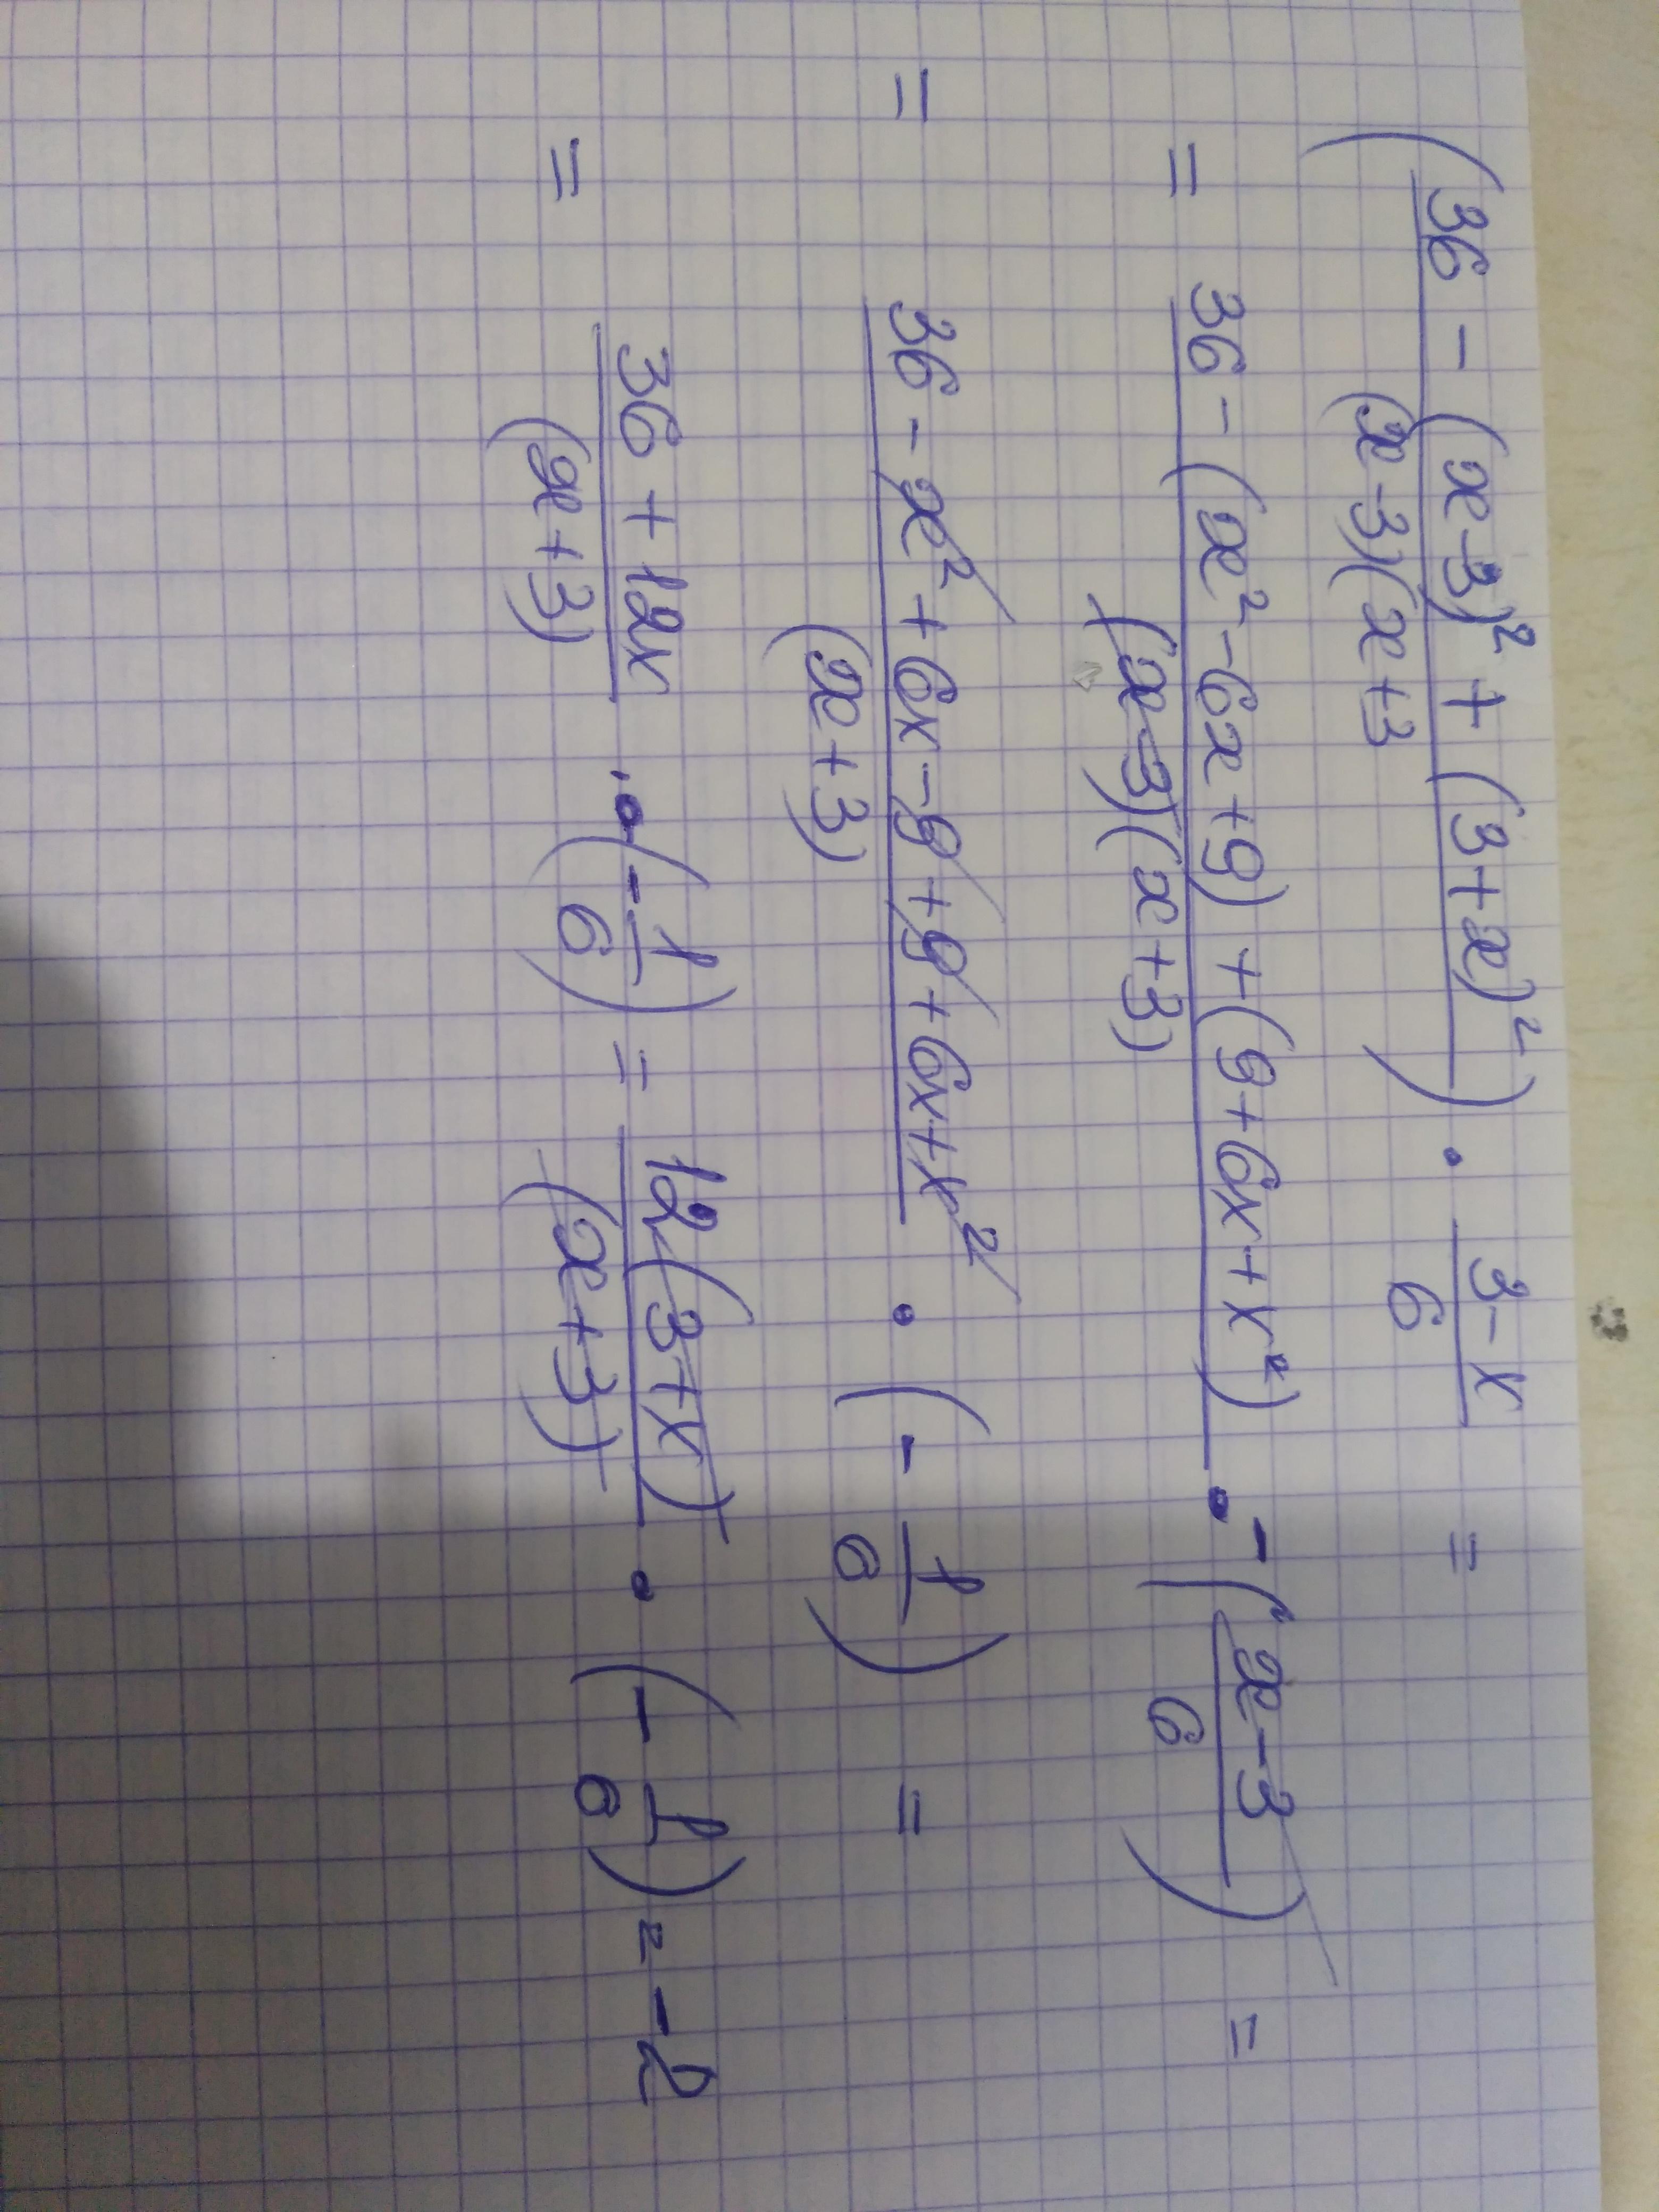 (36 - (x-3)² + (3+x)² / (x-3)(x+3) · 3-x / 6 =
= 36 - (x² - 6x + 9) + (9 + 6x + x²) / (x-3)(x+3) · - (x-3 / 6) =
= 36 - x² + 6x - 9 + 9 + 6x + x² / (x+3) · (- 1/6) =
= 36 + 12x / (x+3) · (- 1/6) = 12(3+x) / (x+3) · (- 1/6) = -2